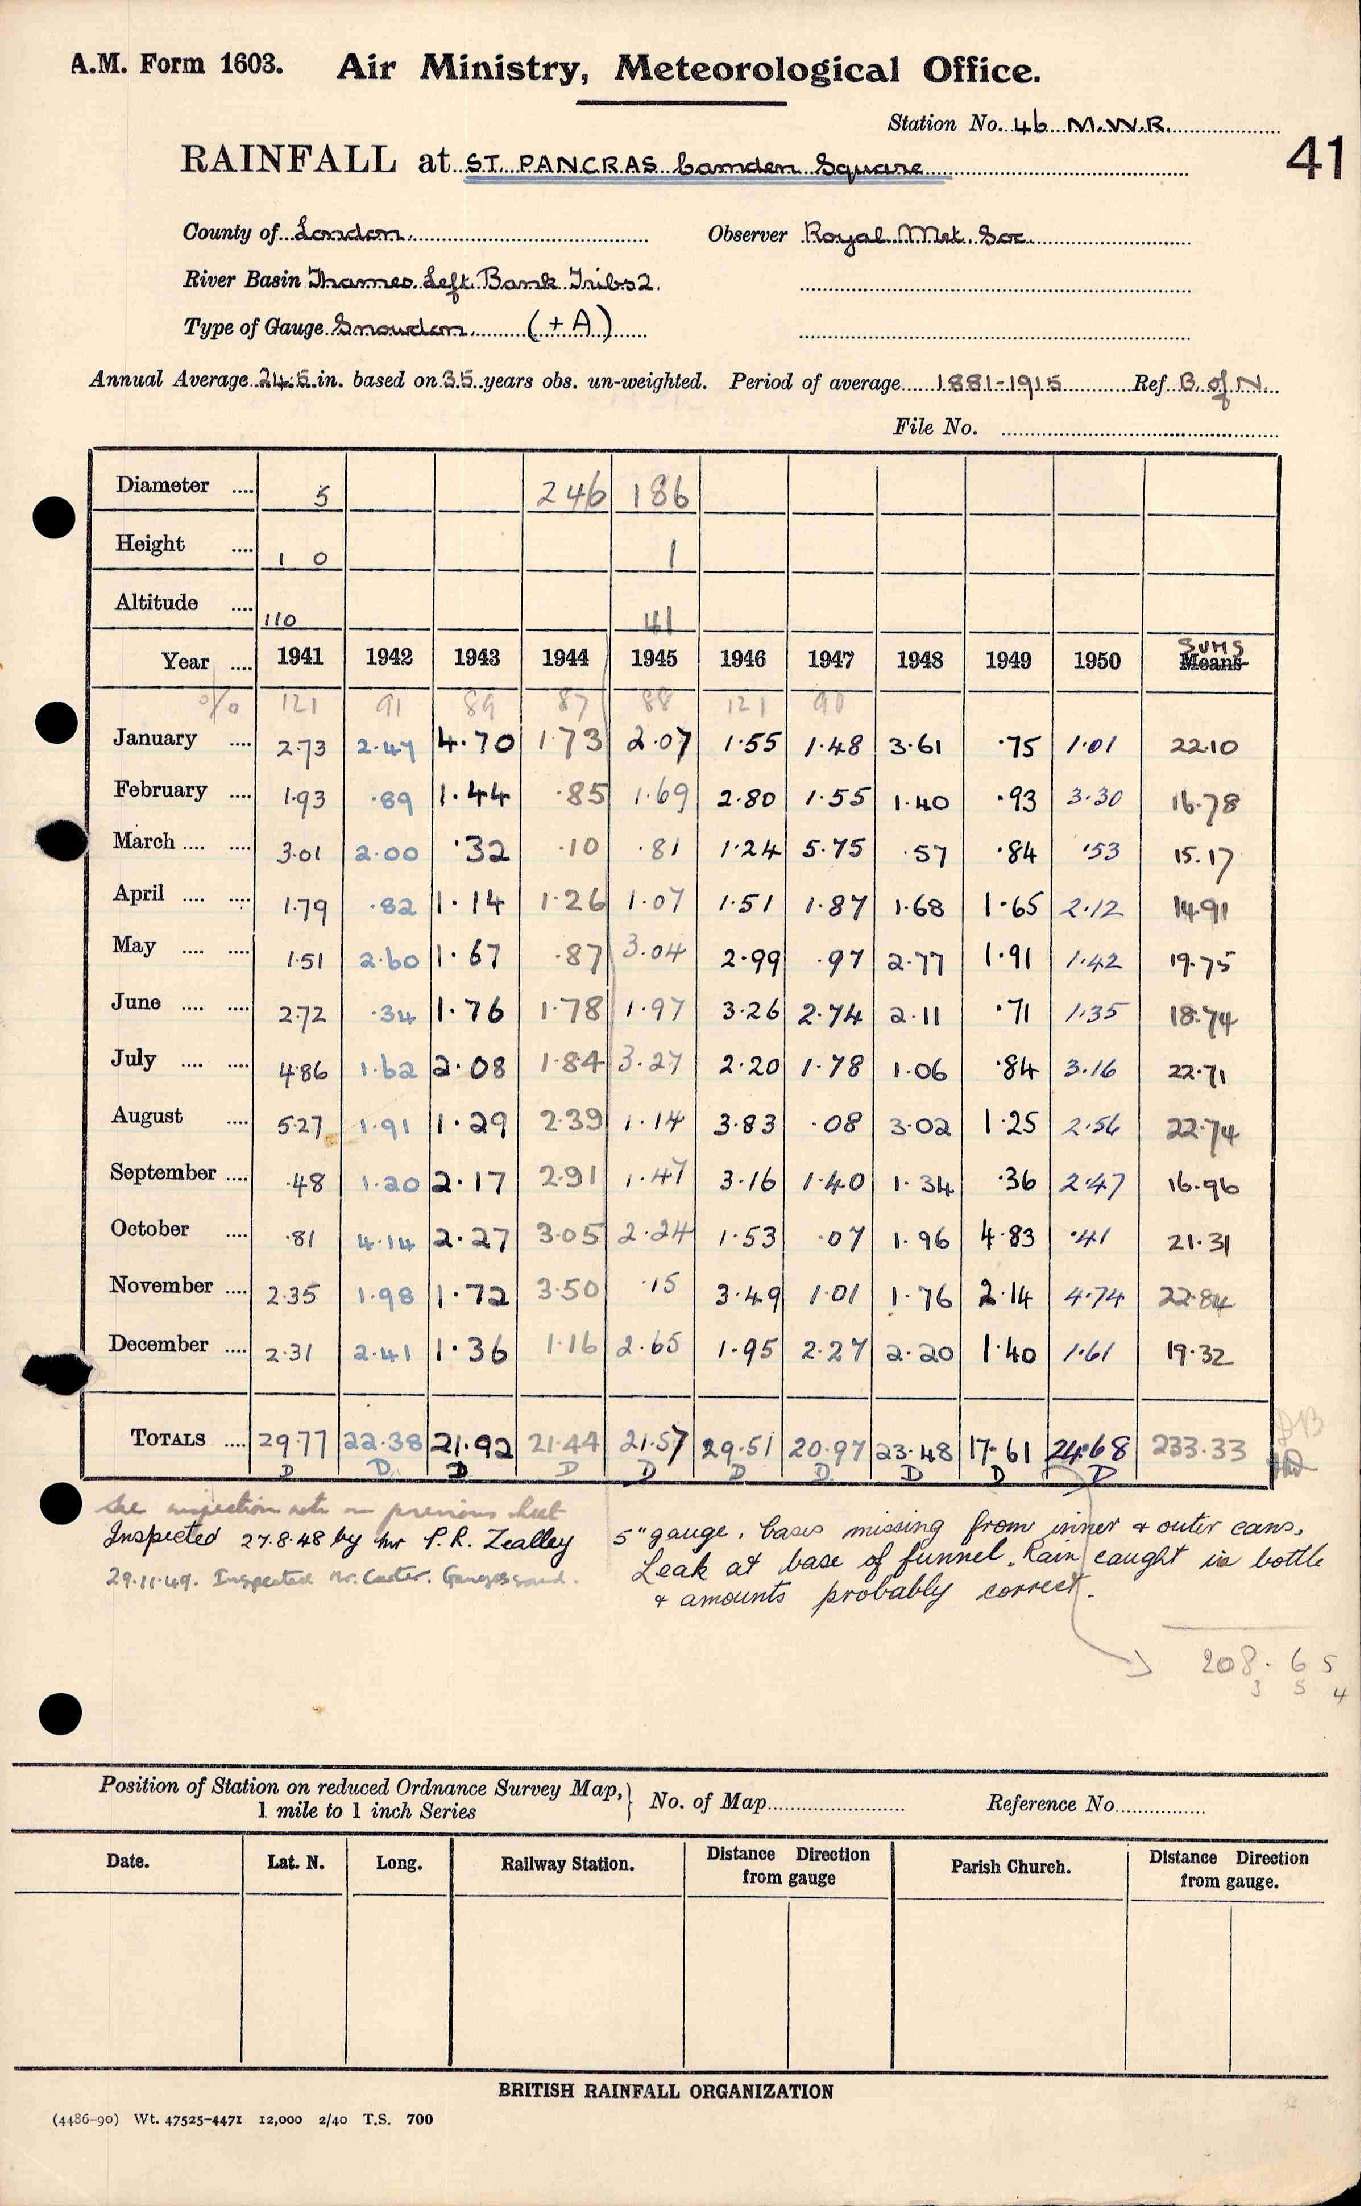 A.M. Form 1603. Air Ministry, Meteorological Office.
Station No. 46 M.W.R.
41
RAINFALL at ST. PANCRAS Camden Square
County of London. Observer Royal Met. Soc.
River Basin Thames Left Bank Tribs 2.
Type of Gauge Snowdon. (+A)
Annual Average 24.5 in. based on 35 years obs. un-weighted. Period of average 1881-1915 Ref. B. of N.
File No.
Diameter .... 5 246 186
Height .... 1 0 1
Altitude .... 110 41
SUMS
Year .... 1941 1942 1943 1944 1945 1946 1947 1948 1949 1950 Means
% 121 91 89 87 88 121 90
January .... 2.73 2.47 4.70 1.73 2.07 1.55 1.48 3.61 .75 1.01 22.10
February .... 1.93 .89 1.44 .85 1.69 2.80 1.55 1.40 .93 3.30 16.78
March .... .... 3.01 2.00 .32 .10 .81 1.24 5.75 .57 .84 .53 15.17
April .... .... 1.79 .82 1.14 1.26 1.07 1.51 1.87 1.68 1.65 2.12 14.91
May .... .... 1.51 2.60 1.67 .87 3.04 2.99 .97 2.77 1.91 1.42 19.75
June .... .... 2.72 .34 1.76 1.78 1.97 3.26 2.74 2.11 .71 1.35 18.74
July .... .... 4.86 1.62 2.08 1.84 3.27 2.20 1.78 1.06 .84 3.16 22.71
August .... 5.27 1.91 1.29 2.39 1.14 3.83 .08 3.02 1.25 2.56 22.74
September .... .48 1.20 2.17 2.91 1.47 3.16 1.40 1.34 .36 2.47 16.96
October .... .81 4.14 2.27 3.05 2.24 1.53 .07 1.96 4.83 .41 21.31
November .... 2.35 1.98 1.72 3.50 .15 3.49 1.01 1.76 2.14 4.74 22.84
December .... 2.31 2.41 1.36 1.16 2.65 1.95 2.27 2.20 1.40 1.61 19.32
TOTALS .... 29.77 22.38 21.92 21.44 21.57 29.51 20.97 23.48 17.61 24.68 233.33
D D D D D D D D D D
See inspection note on previous sheet
Inspected 27.8.48 by Mr P. R. Zealley 5" gauge. bases missing from inner & outer cans.
Leak at base of funnel. Rain caught in bottle
& amounts probably correct.
29.11.49. Inspected Mr. Carter. Gauges sound.
208.65
3 5 4
Position of Station on reduced Ordnance Survey Map, No. of Map Reference No.
1 mile to 1 inch Series
Date. Lat. N. Long. Railway Station. Distance Direction from gauge Parish Church. Distance Direction from gauge.
BRITISH RAINFALL ORGANIZATION
(4486-90) Wt. 47525-4471 12,000 2/40 T.S. 700